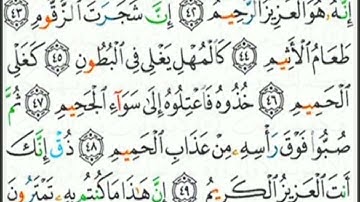 إِنَّهُۥ هُوَ ٱلْعَزِيزُ ٱلرَّحِيمُ ﴿٤٢﴾ إِنَّ شَجَرَتَ ٱلزَّقُّومِ ﴿٤٣﴾
طَعَامُ ٱلْأَثِيمِ ﴿٤٤﴾ كَٱلْمُهْلِ يَغْلِى فِى ٱلْبُطُونِ ﴿٤٥﴾ كَغَلْىِ
ٱلْحَمِيمِ ﴿٤٦﴾ خُذُوهُ فَٱعْتِلُوهُ إِلَىٰ سَوَآءِ ٱلْجَحِيمِ ﴿٤٧﴾ ثُمَّ
صُبُّوا۟ فَوْقَ رَأْسِهِۦ مِنْ عَذَابِ ٱلْحَمِيمِ ﴿٤٨﴾ ذُقْ إِنَّكَ
أَنتَ ٱلْعَزِيزُ ٱلْكَرِيمُ ﴿٤٩﴾ إِنَّ هَـٰذَا مَا كُنتُم بِهِۦ تَمْتَرُونَ